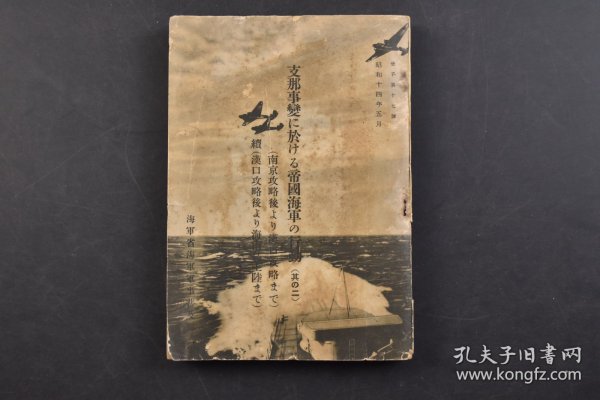 昭和十四年五月
支那事變に於ける帝國海軍の行動(其の二)
(南京攻略後より漢口攻略まで)
續(漢口攻略後より海南島上陸まで)
海軍省海軍
孔夫子旧书网
www.kongfz.com